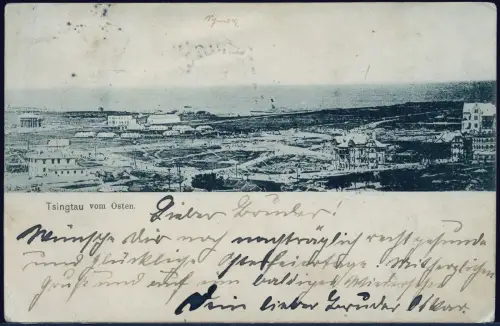 Tsingtau vom Osten.
Lieber Bruder!
Wünsche Dir noch nachträglich recht gesunde
und glückliche Osterfeiertage. Mit herzlichen
Gruß und auf ein baldiges Wiedersehen
Dein lieber Bruder Oskar.